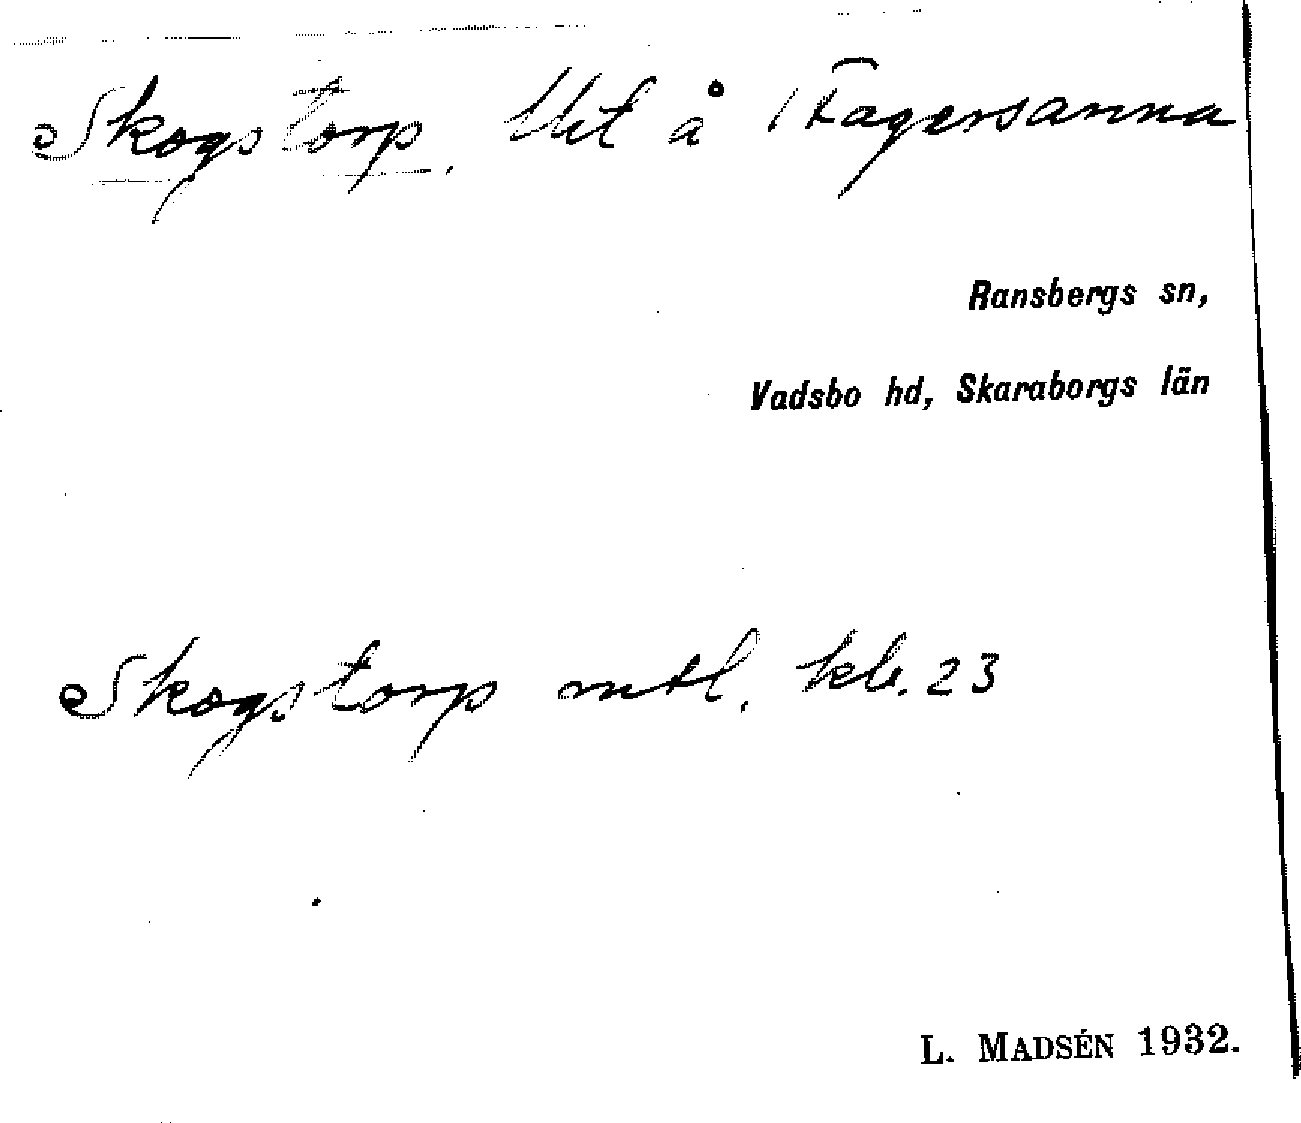 Skogstorp, lht å 1 Fagersanna
Ransbergs sn,
Vadsbo hd, Skaraborgs län
Skogstorp mtl. kb. 23
L. MADSÉN 1932.